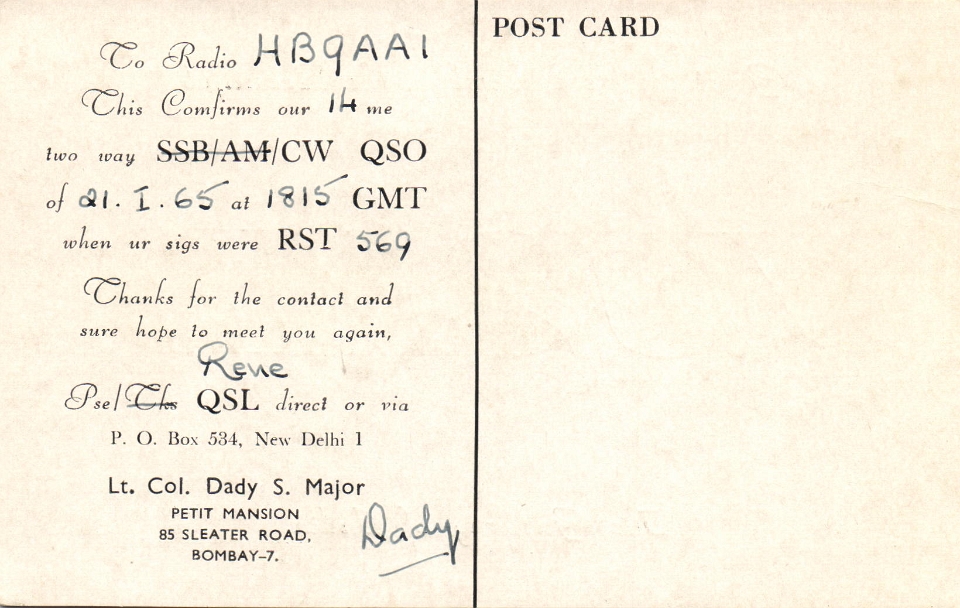 To Radio HB9AAI
This Comfirms our 14 mc
two way SSB/AM/CW QSO
of 21. I. 65 at 1815 GMT
when ur sigs were RST 569
Thanks for the contact and
sure hope to meet you again,
Rene
Pse/Tks QSL direct or via
P. O. Box 534, New Delhi 1
Lt. Col. Dady S. Major
PETIT MANSION
85 SLEATER ROAD,
BOMBAY-7.
Dady
POST CARD